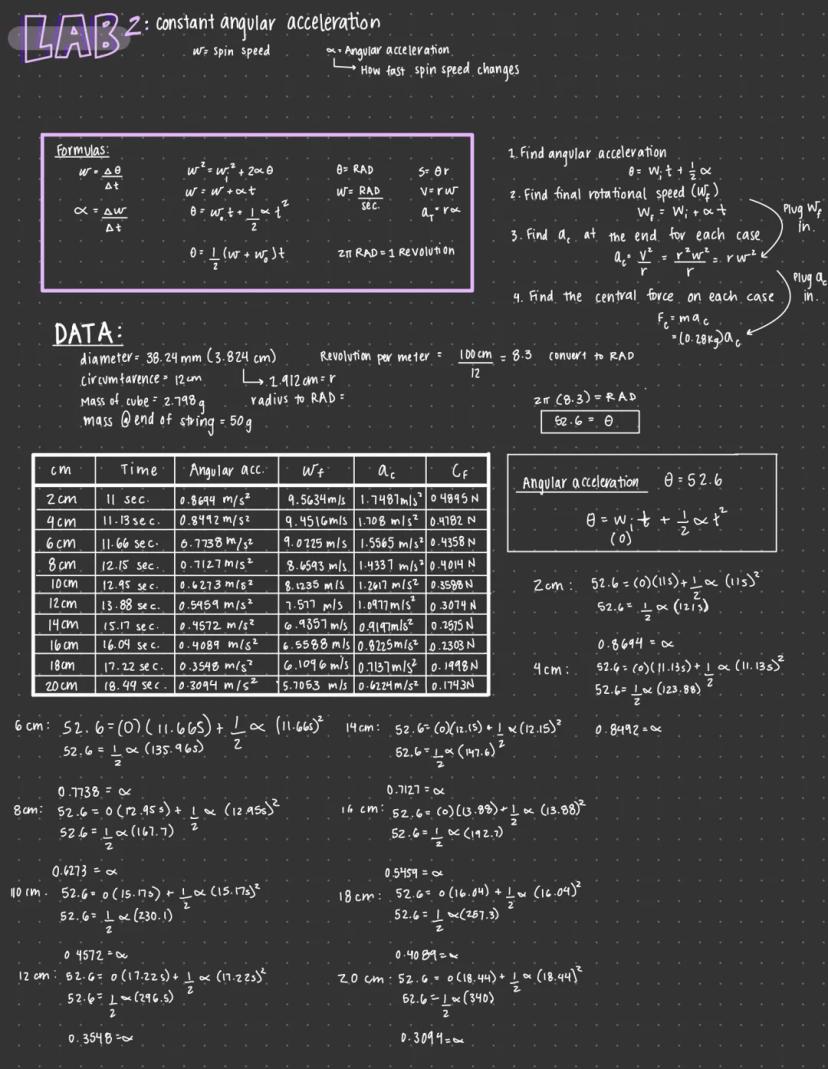 LAB 2: constant angular acceleration
w= spin speed
α = Angular acceleration
↳ How fast spin speed changes
Formulas:
w = Δθ/Δt
α = Δw/Δt
w² = wᵢ² + 2αθ
w = w + αt
θ = w₀t + 1/2 αt²
θ = 1/2 (w + w₀)t
θ = RAD
w = RAD/sec.
2π RAD = 1 Revolution
s = θr
v = rw
a_T = rα
1. Find angular acceleration
θ = wᵢt + 1/2 α
2. Find final rotational speed (w_f)
w_f = wᵢ + αt
Plug w_f in.
3. Find a_c at the end for each case
a_c = v²/r = r²w²/r = rw²
Plug a_c in.
4. Find the central force on each case
F_c = ma_c
= (0.28kg)a_c
DATA:
diameter = 38.24 mm (3.824 cm)
circumfarence = 12cm ↳ 1.912cm = r
Mass of cube = 2.798g radius to RAD =
mass @ end of string = 50g
Revolution per meter = 100cm/12 = 8.3 convert to RAD
2π (8.3) = RAD
52.6 = θ
cm Time Angular acc. w_f a_c C_F
2cm 11 sec. 0.8694 m/s² 9.5634m/s 1.7487m/s² 0.4895 N
4cm 11.13 sec. 0.8492 m/s² 9.4516m/s 1.708 m/s² 0.4782 N
6cm 11.66 sec. 0.7738 m/s² 9.0225 m/s 1.5565 m/s² 0.4358 N
8cm 12.15 sec. 0.7127 m/s² 8.6593 m/s 1.4337 m/s² 0.4014 N
10cm 12.95 sec. 0.6273 m/s² 8.1235 m/s 1.2617 m/s² 0.3588 N
12cm 13.88 sec. 0.5459 m/s² 7.577 m/s 1.0977m/s² 0.3074 N
14cm 15.17 sec. 0.4572 m/s² 6.9357 m/s 0.9197m/s² 0.2575 N
16cm 16.04 sec. 0.4089 m/s² 6.5588 m/s 0.8225m/s² 0.2303 N
18cm 17.22 sec. 0.3548 m/s² 6.1096 m/s 0.7137m/s² 0.1998 N
20cm 18.44 sec. 0.3094 m/s² 5.7053 m/s 0.6224m/s² 0.1743N
Angular acceleration θ = 52.6
θ = wᵢt + 1/2 αt²
(0)
2cm: 52.6 = (0)(11s) + 1/2 α (11s)²
52.6 = 1/2 α (121s)
0.8694 = α
4cm: 52.6 = (0)(11.13s) + 1/2 α (11.13s)²
52.6 = 1/2 α (123.88)
0.8492 = α
6cm: 52.6 = (0)(11.66s) + 1/2 α (11.66s)²
52.6 = 1/2 α (135.96s)
0.7738 = α
8cm: 52.6 = 0(12.95s) + 1/2 α (12.95s)²
52.6 = 1/2 α (167.7)
0.6273 = α
110 cm. 52.6 = 0(15.17s) + 1/2 α (15.17s)²
52.6 = 1/2 α (230.1)
0.4572 = α
12 cm: 52.6 = 0(17.22s) + 1/2 α (17.22s)²
52.6 = 1/2 α (296.5)
0.3548 = α
14cm: 52.6 = (0)(12.15) + 1/2 α (12.15)²
52.6 = 1/2 α (147.6)
0.7127 = α
16 cm: 52.6 = (0)(13.88) + 1/2 α (13.88)²
52.6 = 1/2 α (192.7)
0.5459 = α
18cm: 52.6 = 0(16.04) + 1/2 α (16.04)²
52.6 = 1/2 α (257.3)
0.4089 = α
20 cm: 52.6 = 0(18.44) + 1/2 α (18.44)²
52.6 = 1/2 α (340)
0.3094 = α